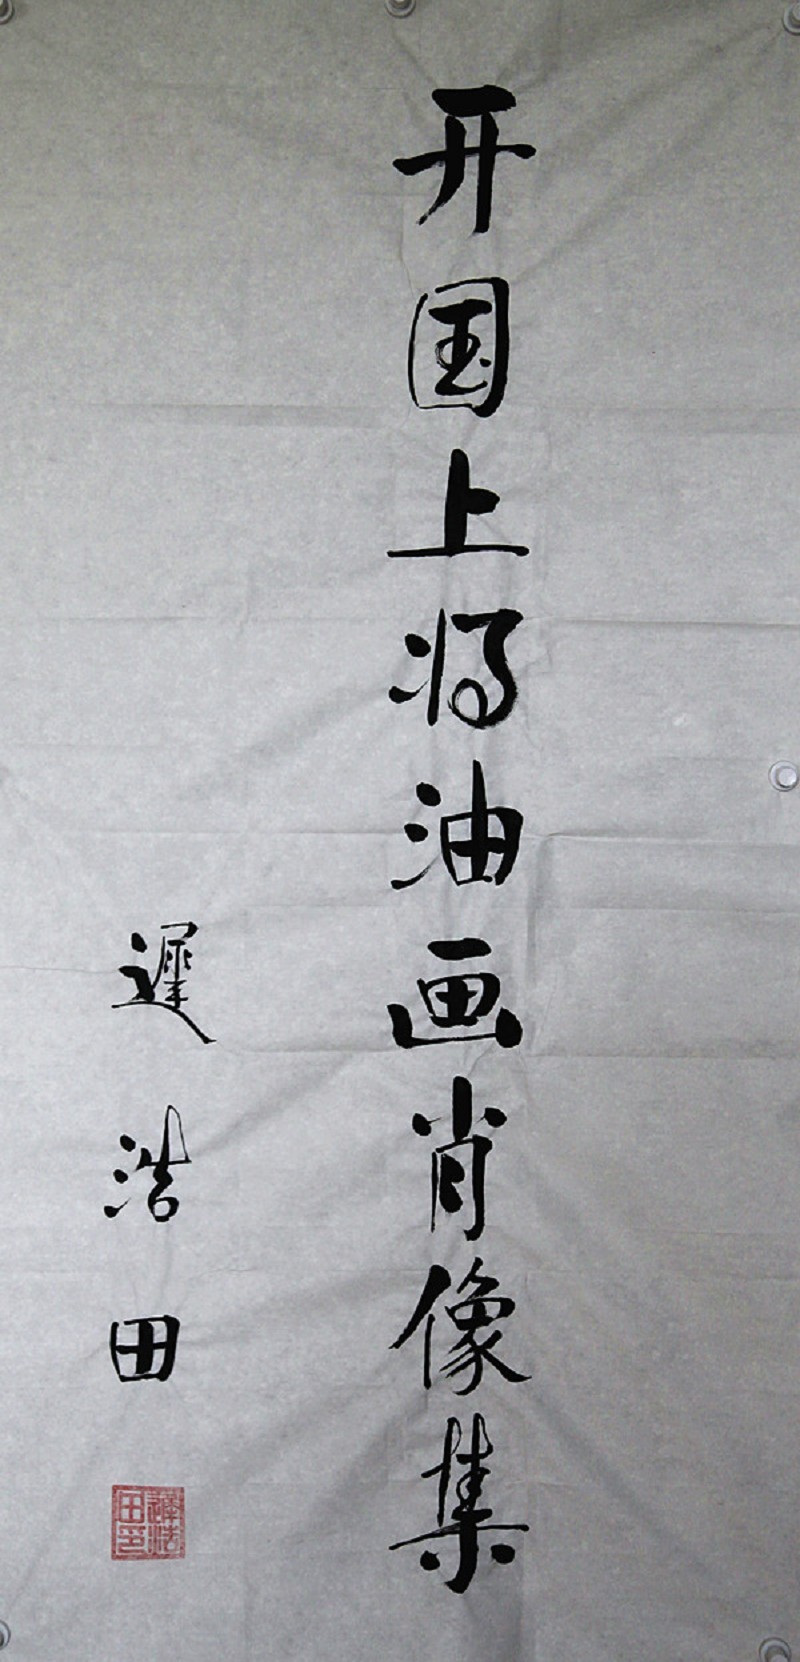 开国上将油画肖像集
遲浩田
遲浩田印